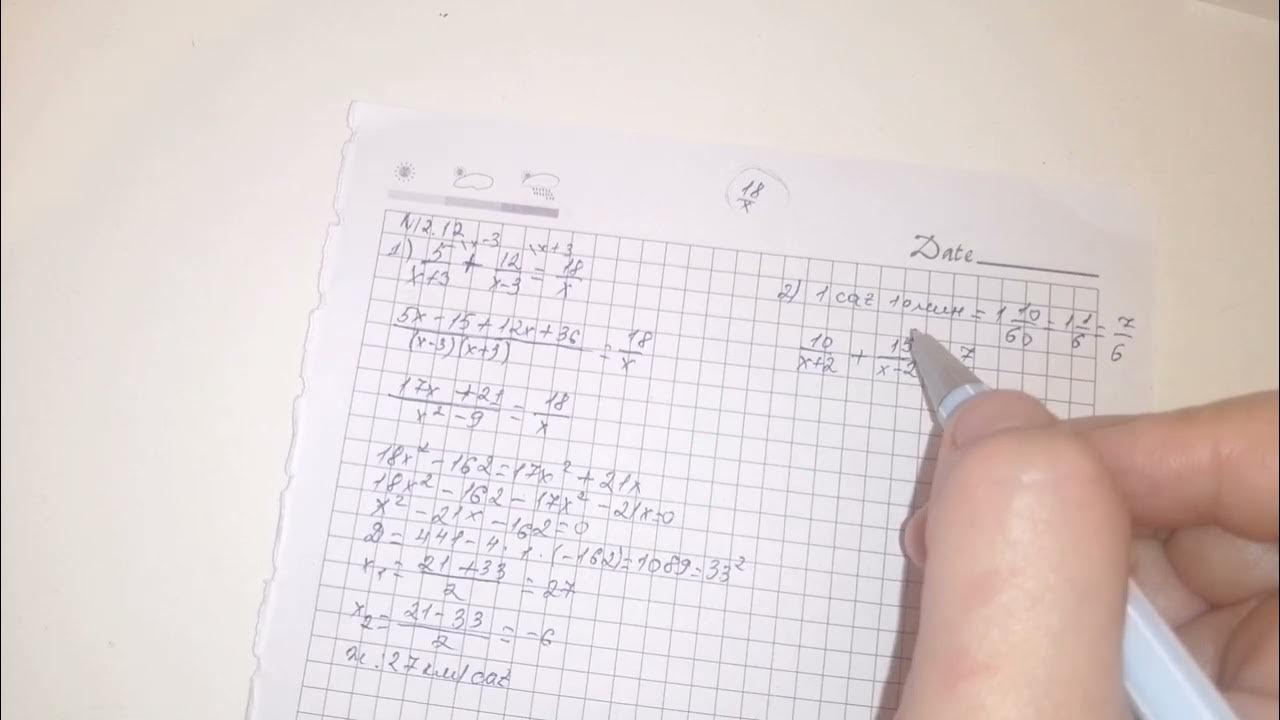 18/x
Date
№2.12
\x-3 \x+3
1) 5/(x+3) + 12/(x-3) = 18/x
(5x - 15 + 12x + 36)/((x-3)(x+3)) = 18/x
(17x + 21)/(x² - 9) = 18/x
18x² - 162 = 17x² + 21x
18x² - 162 - 17x² - 21x = 0
x² - 21x - 162 = 0
D = 441 - 4 · 1 · (-162) = 1089 = 33²
x₁ = (21 + 33)/2 = 27
x₂ = (21 - 33)/2 = -6
Ж: 27 км/сағ
2) 1 сағ 10 мин = 1 10/60 = 1 1/6 = 7/6
10/(x+2) + 15/(x-2) 7